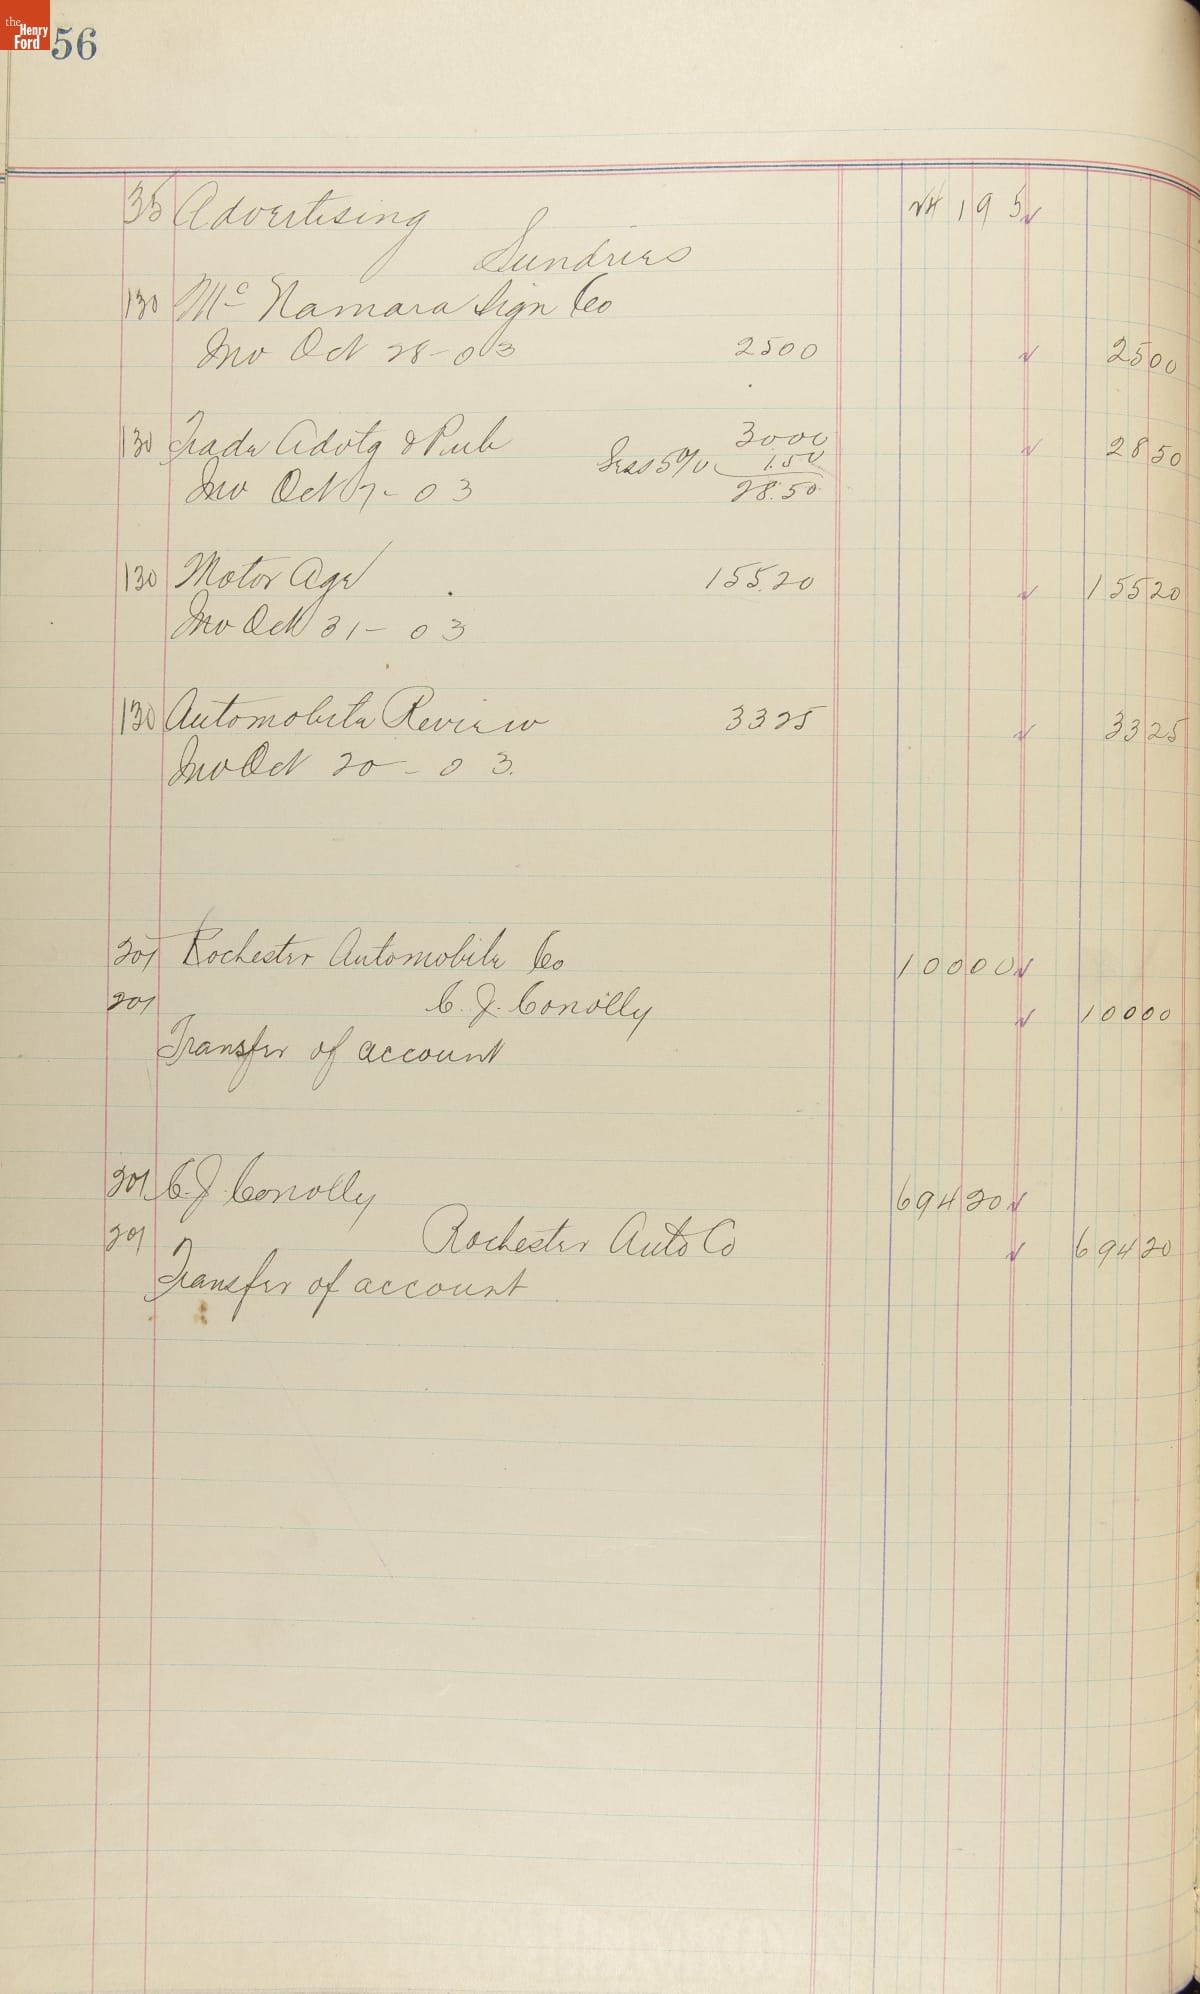 the Henry Ford
56
35 Advertising 24195
Sundries
130 Mc Namara Sign Co
Inv Oct 28-03 2500 2500
130 Trade Advtg & Pub 3000 2850
Less 5% 1.50
Inv Oct 7-03 28.50
130 Motor Age 155.20 15520
Inv Oct 31-03
130 Automobile Review 3325 3325
Inv Oct 20-03.
201 Rochester Automobile Co 10000
201 C. J. Conolly 10000
Transfer of account
201 C. J. Conolly 69420
201 Rochester Auto Co 69420
Transfer of account